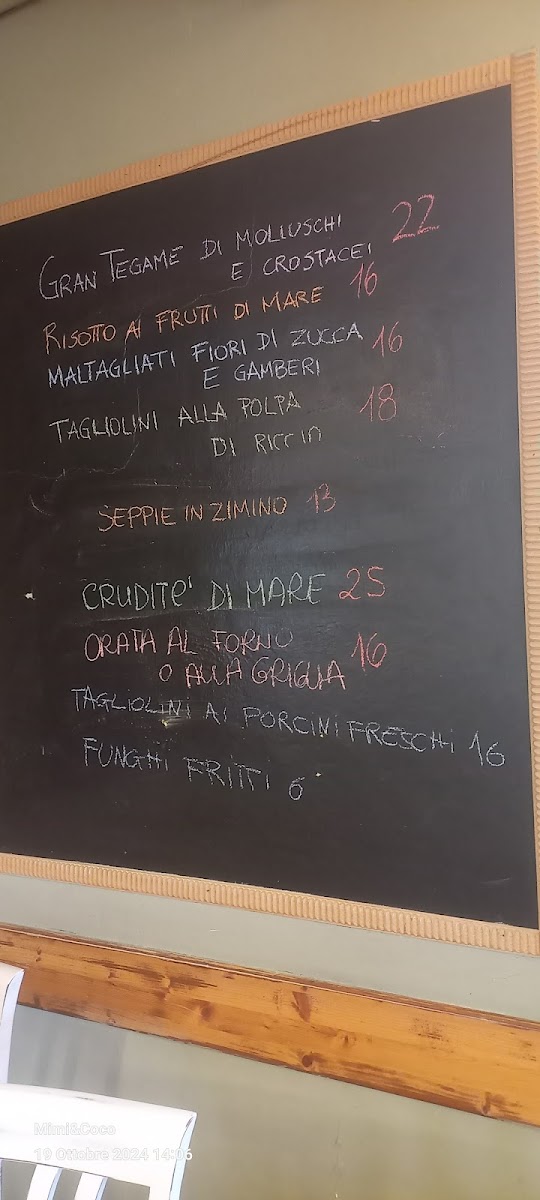 GRAN TEGAME DI MOLLUSCHI 22
E CROSTACEI
RISOTTO AI FRUTTI DI MARE 16
MALTAGLIATI FIORI DI ZUCCA 16
E GAMBERI
TAGLIOLINI ALLA POLPA 18
DI RICCIO
SEPPIE IN ZIMINO 13
CRUDITE' DI MARE 25
ORATA AL FORNO 16
O ALLA GRIGLIA
TAGLIOLINI AI PORCINI FRESCHI 16
FUNGHI FRITTI 6
Mimi&Coco
19 Ottobre 2024 14:06